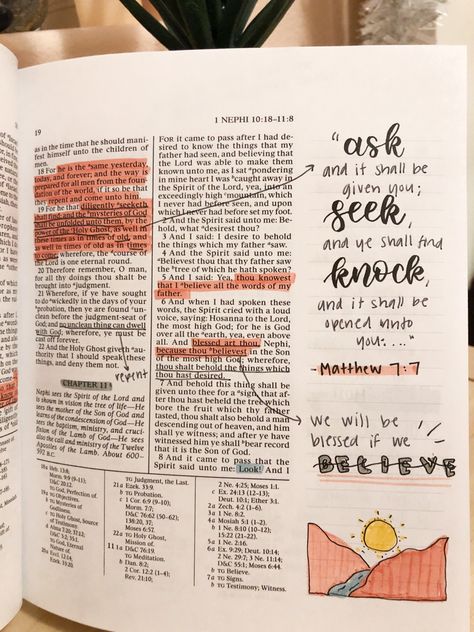 1 NEPHI 10:18–11:8
19
as in the time that he should mani-
fest himself unto the children of
men.
18 For he is the ᵃsame yesterday,
today, and forever; and the way is
prepared for all men from the foun-
dation of the world, if it so be that
they repent and come unto him.
19 For he that diligently ᵃseeketh
shall find; and the ᵇmysteries of God
shall be unfolded unto them, by the
power of the ᶜHoly Ghost, as well in
these times as in times of old, and as
well in times of old as in times
to come; wherefore, the ᵈcourse of
the Lord is one eternal round.
20 Therefore remember, O man,
for all thy doings thou shalt be
brought into ᵃjudgment.
21 Wherefore, if ye have sought
to do ᵃwickedly in the days of your
ᵇprobation, then ye are found ᶜun-
clean before the judgment-seat of
God; and no unclean thing can dwell
with God; wherefore, ye must be
cast off forever.
22 And the Holy Ghost giveth
authority that I should speak these
things, and deny them not.
repent
CHAPTER 11
Nephi sees the Spirit of the Lord and
is shown in vision the tree of life—He
sees the mother of the Son of God and
learns of the condescension of God—He
sees the baptism, ministry, and cruci-
fixion of the Lamb of God—He sees
also the call and ministry of the Twelve
Apostles of the Lamb. About 600–
592 B.C.
FOR it came to pass after I had de-
sired to know the things that my
father had seen, and believing that
the Lord was able to make them
known unto me, as I sat ᵃpondering
in mine heart I was ᵇcaught away in
the Spirit of the Lord, yea, into an
exceedingly high ᶜmountain, which
I never had before seen, and upon
which I never had before set my foot.
2 And the Spirit said unto me: Be-
hold, what ᵃdesirest thou?
3 And I said: I desire to behold
the things which my father ᵃsaw.
4 And the Spirit said unto me:
ᵃBelievest thou that thy father saw
the ᵇtree of which he hath spoken?
5 And I said: Yea, thou knowest
that I ᵃbelieve all the words of my
father.
6 And when I had spoken these
words, the Spirit cried with a loud
voice, saying: Hosanna to the Lord,
the most high God; for he is God
over all the ᵃearth, yea, even above
all. And blessed art thou, Nephi,
because thou ᵇbelievest in the Son
of the most high God; wherefore,
thou shalt behold the things which
thou hast desired.
7 And behold this thing shall be
given unto thee for a ᵃsign, that af-
ter thou hast beheld the tree which
bore the fruit which thy father
tasted, thou shalt also behold a man
descending out of heaven, and him
shall ye witness; and after ye have
witnessed him ye shall ᵇbear record
that it is the Son of God.
8 And it came to pass that the
Spirit said unto me: Look! And I
18a Heb. 13:8;
Morm. 9:9 (9–11);
D&C 20:12.
TG God, Perfection of.
TG Objectives.
TG Mysteries of
Godliness.
TG Holy Ghost, Source
of Testimony.
Alma 7:20; 37:12;
D&C 3:2; 35:1.
TG God, Eternal
Nature of.
20a Eccl. 12:14;
Ezek. 33:20.
TG Judgment, the Last.
21a Ezek. 33:9.
b TG Probation.
c 1 Cor. 6:9 (9–10);
Morm. 7:7;
D&C 76:62 (50–62);
138:20, 37;
Moses 6:57.
22a TG Holy Ghost,
Mission of.
11 1a D&C 76:19.
TG Meditation.
b Dan. 8:2;
2 Cor. 12:2 (1–4);
Rev. 21:10;
2 Ne. 4:25; Moses 1:1.
c Ex. 24:13 (12–13);
Deut. 10:1; Ether 3:1.
2a Zech. 4:2 (1–6).
3a 1 Ne. 8:2.
4a Mosiah 5:1 (1–2).
b 1 Ne. 8:10 (10–12);
15:22 (21–22).
5a 1 Ne. 2:16.
6a Ex. 9:29; Deut. 10:14;
2 Ne. 29:7; 3 Ne. 11:14;
D&C 55:1; Moses 6:44.
b TG Believe.
7a TG Signs.
b TG Testimony; Witness.
"ask
and it shall be
given you;
SEEK,
and ye shall find
KNOCK,
and it shall be
opened unto
you:...."
-Matthew 7:7
we will be
blessed if we
BELIEVE